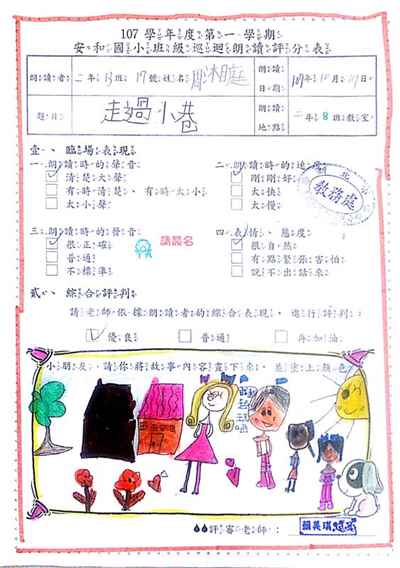 107學年度第一學期
安和國小班級巡迴朗讀評分表
朗讀者 二年13班17號姓名 沐庭 朗讀日期 107年10月
題目 走過小巷 朗讀地點 二年8班教室
壹、臨場表現
一、朗讀時的聲音 二、朗讀時的速度
清楚大聲 剛剛好
有時清楚、有時太小 太快
太小聲 太慢
教務處
三、朗讀時的聲音 四、表情、態度
很正確 很自然
普通 有點緊張害怕
不標準 說不出話來
請簽名
貳、綜合評判
請老師依據朗讀者的綜合表現，進行評判：
優良 普通 再加油
小朋友，請你將故事內容畫下來，並塗上顏色
評審老師：